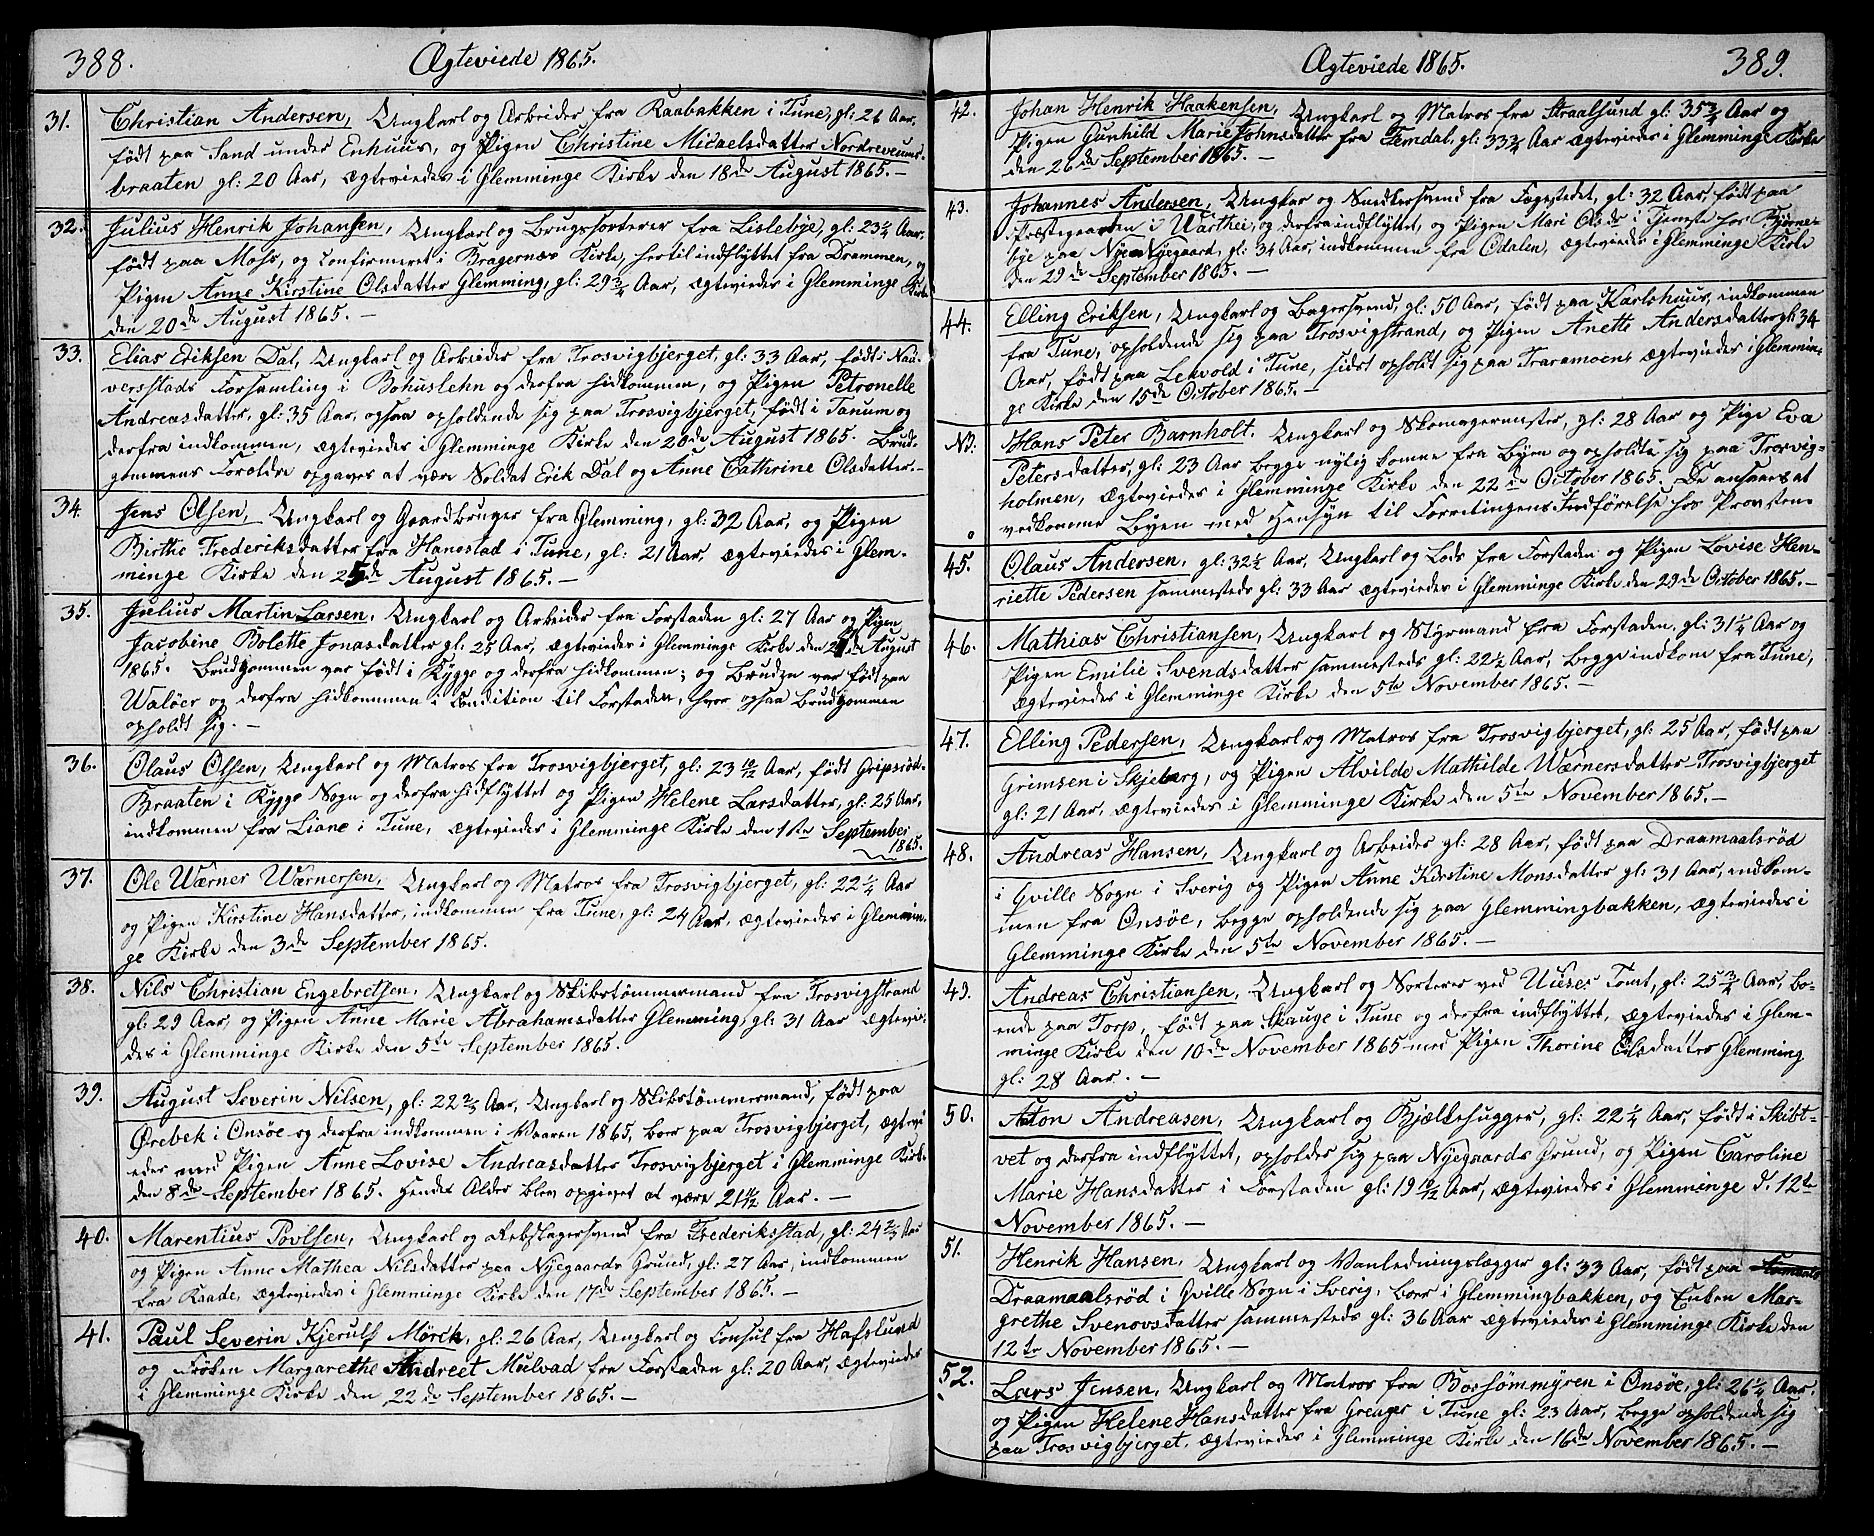 388.
Ægteviede 1865.
31. Christian Andersen, Ungkarl og Arbeider fra Raabakken i Tune, gl: 26 Aar,
født paa Sand under Enhuus, og Pigen Christine Micaelsdatter Nordreveums-
braaten gl: 20 Aar, Ægteviedes i Glemminge Kirke den 18de August 1865. —
32. Julius Henrik Johansen, Ungkarl og Brugssorterer fra Lislebye, gl: 23¼ Aar,
født paa Moss, og Confirmeret i Bragernæs Kirke, hertil indflyttet fra Drammen, og
Pigen Anne Kirstine Olsdatter Glemming, gl: 29¾ Aar, Ægteviedes i Glemminge Kirke
den 20de August 1865. —
33. Elias Eriksen Dal, Ungkarl og Arbeider fra Trosvigbjerget, gl: 33 Aar, født i Nau-
versstads Forsamling i Bohuslehn og derfra hidkommen, og Pigen Petronelle
Andreasdatter, gl: 35 Aar, ogsaa opholdende sig paa Trosvigbjerget, født i Tanum og
derfra indkommen, Ægteviedes i Glemminge Kirke den 20de August 1865. Brud-
gommens Forældre opgaves at være Soldat Erik Dal og Anne Cathrine Olsdatter. —
34. Jens Olsen, Ungkarl og Gaardbruger fra Glemming, gl: 32 Aar, og Pigen
Birthe Frederiksdatter fra Hanestad i Tune, gl: 21 Aar, Ægteviedes i Glem-
minge Kirke den 25de August 1865. —
35. Julius Martin Larsen, Ungkarl og Arbeider fra Forstaden gl: 27 Aar og Pigen
Jacobine Bolette Jonasdatter gl: 25 Aar, Ægteviedes i Glemminge Kirke den August
1865. Brudgommen var født i Rygge og derfra hidkommen; og Bruden var født paa
Waløer og derfra hidkommen i Condition til Forstaden, hvor ogsaa Brudgommen
opholdt sig. —
36. Olaus Olsen, Ungkarl og Matros fra Trosvigbjerget, gl: 23 10/12 Aar, født Gripsrød-
Braaten i Rygge Sogn og derfra hidflyttet og Pigen Helene Larsdatter, gl: 25 Aar,
indkommen fra Liane i Tune, Ægteviedes i Glemminge Kirke den 1ste September
1865.
37. Ole Wærner Wærnersen, Ungkarl og Matros fra Trosvigbjerget, gl: 22¼ Aar
og Pigen Kirstine Hansdatter, indkommen fra Tune, gl: 24 Aar, Ægteviedes i Glemmin-
ge Kirke den 3de September 1865.
38. Nils Christian Engebretsen, Ungkarl og Skibstømmermand fra Trosvigstrand
gl: 29 Aar, og Pigen Anne Marie Abrahamsdatter Glemming, gl: 31 Aar Ægtevie-
des i Glemminge Kirke den 5te September 1865.
39. August Severin Nilsen, gl: 22⅔ Aar, Ungkarl og Skibstømmermand, født paa
Ørebek i Onsøe og derfra indkommen i Vaaren 1865, boer paa Trosvigbjerget, Ægtevi-
edes med Pigen Anne Lovise Andreasdatter Trosvigbjerget i Glemminge Kirke
den 8de September 1865. Hendes Alder blev opgivet at være 21 Aar. —
40. Marentius Povlsen, Ungkarl og Rebslagersvend fra Frederiksstad, gl: 24⅔ Aar
og Pigen Anne Mathea Nilsdatter paa Nyegaards Grund, gl: 27 Aar, indkommen
fra Raade, Ægteviedes i Glemminge Kirke den 17de September 1865. —
41. Paul Severin Kjerulf Mörck, gl: 26 Aar, Ungkarl og Consul fra Hafslund
og Frøken Margarethe Andreet Mulvad fra Forstaden gl: 20 Aar, Ægteviedes
i Glemminge Kirke den 22de September 1865. —
Ægteviede 1865.
389.
42. Johan Henrik Haakensen, Ungkarl og Matros fra Straalsund gl: 35¾ Aar og
Pigen Gunhild Marie Johnsdatter fra Temdal, gl: 33¾ Aar Ægteviedes i Glemminge Kirke
den 26de September 1865. —
43. Johannes Andersen, Ungkar og Snedkersvend fra Fægestedet, gl: 32 Aar, født paa
Præstegaarden i Warthei, og derfra indflyttet, og Pigen Mari Olsdr i Tjeneste hos Bjørne-
bye paa Nye Nyegaard, gl: 34 Aar, indkommen fra Odalen, Ægteviedes i Glemminge Kirke
den 29de September 1865. —
44. Elling Eriksen, Ungkarl og Bagersvend, gl: 50 Aar, født paa Karlshuus, indkommen
fra Tune, opholdende sig paa Trosvigstrand, og Pigen Anette Andersdatter gl: 34
Aar, født paa Lekvold i Tune, sidst opholdt sig paa Traramoens Ægteviedes i Glemmin-
ge Kirke den 15de October 1865. —
NB. Hans Peter Barnholt. Ungkarl og Skomagermester, gl: 28 Aar og Pige Eva
Petersdatter, gl: 23 Aar begge nylig komne fra Byen og opholdte sig paa Trosvig-
holmen, Ægteviedes i Glemminge Kirke den 22de October 1865. De ansaaes at
vedkomme Byen med Hensyn til Forretningens Indførelse hos Provsten.
45. Olaus Andersen, gl: 32½ Aar, Ungkarl og Lods fra Forstaden og Pigen Lovise Hen-
riette Pedersen sammesteds gl: 33 Aar Ægteviedes i Glemminge Kirke den 29de October 1865. —
46. Mathias Christiansen, Ungkarl og Styrmand fra Forstaden, gl: 31¼ Aar og
Pigen Emilie Svendsdatter sammesteds gl: 22½ Aar, begge indkom fra Tune,
Ægteviedes i Glemminge Kirke den 5te November 1865. —
47. Elling Pedersen, Ungkarl og Matros fra Trosvigbjerget, gl: 25 Aar, født paa
Grimsen i Skjeberg, og Pigen Alvilde Mathilde Wærnersdatter Trosvigbjerget
gl: 21 Aar, Ægteviedes i Glemminge Kirke den 5te November 1865. —
48. Andreas Hansen, Ungkarl og Arbeider gl: 28 Aar, født paa Draamaalsrød
i Qville Sogn i Sverig og Pigen Anne Kirstine Monsdatter gl: 31 Aar, indkom-
men fra Onsøe, begge opholdende sig paa Glemmingbakken, Ægteviedes i
Glemminge Kirke den 5te November 1865. —
49. Andreas Christiansen, Ungkarl og Sorterer ved Wieses Tomt, gl: 25¾ Aar, bo-
ende paa Torp, født paa Skauge i Tune og derfra indflyttet, Ægteviedes i Glem-
minge Kirke den 10de November 1865 med Pigen Thorine Olsdatter Glemming
gl: 28 Aar. —
50. Anton Andreasen, Ungkarl og Bjælkehugger, gl: 22½ Aar, født i Skibt-
vet og derfra indflyttet, opholder sig paa Nyegaards Grund, og Pigen Caroline
Marie Hansdatter i Forstaden gl: 19 10/12 Aar, Ægteviedes i Glemminge d. 12te
November 1865. —
51. Henrik Hansen, Ungkarl og Vanledningslægger gl: 33 Aar, født paa
Draamaalsrød i Qville Sogn i Sverig, boer i Glemmingbakken, og Enken Mar-
grethe Svenovsdatter sammesteds gl: 36 Aar Ægteviedes i Glemminge Kirke den
12te November 1865. —
52. Lars Jensen, Ungkarl og Matros fra Bossømmyren i Onsøe, gl: 26¼ Aar,
og Pigen Helene Hansdatter fra Greager i Tune gl: 23 Aar, begge opholdende sig
paa Trosvigbjerget, Ægteviedes i Glemminge Kirke den 16de November 1865. —